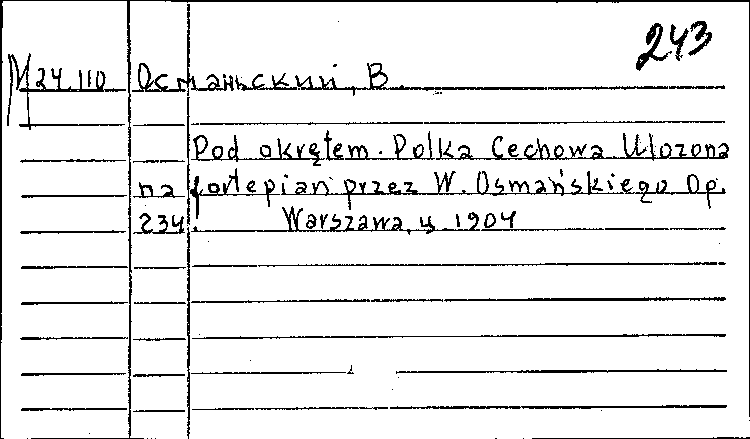 243
M 24.110 Османьский, В.
Pod okrętem. Polka Cechowa Ulozona
na fortepian przez W. Osmańskiego Op.
234. Warszawa, ц. 1904